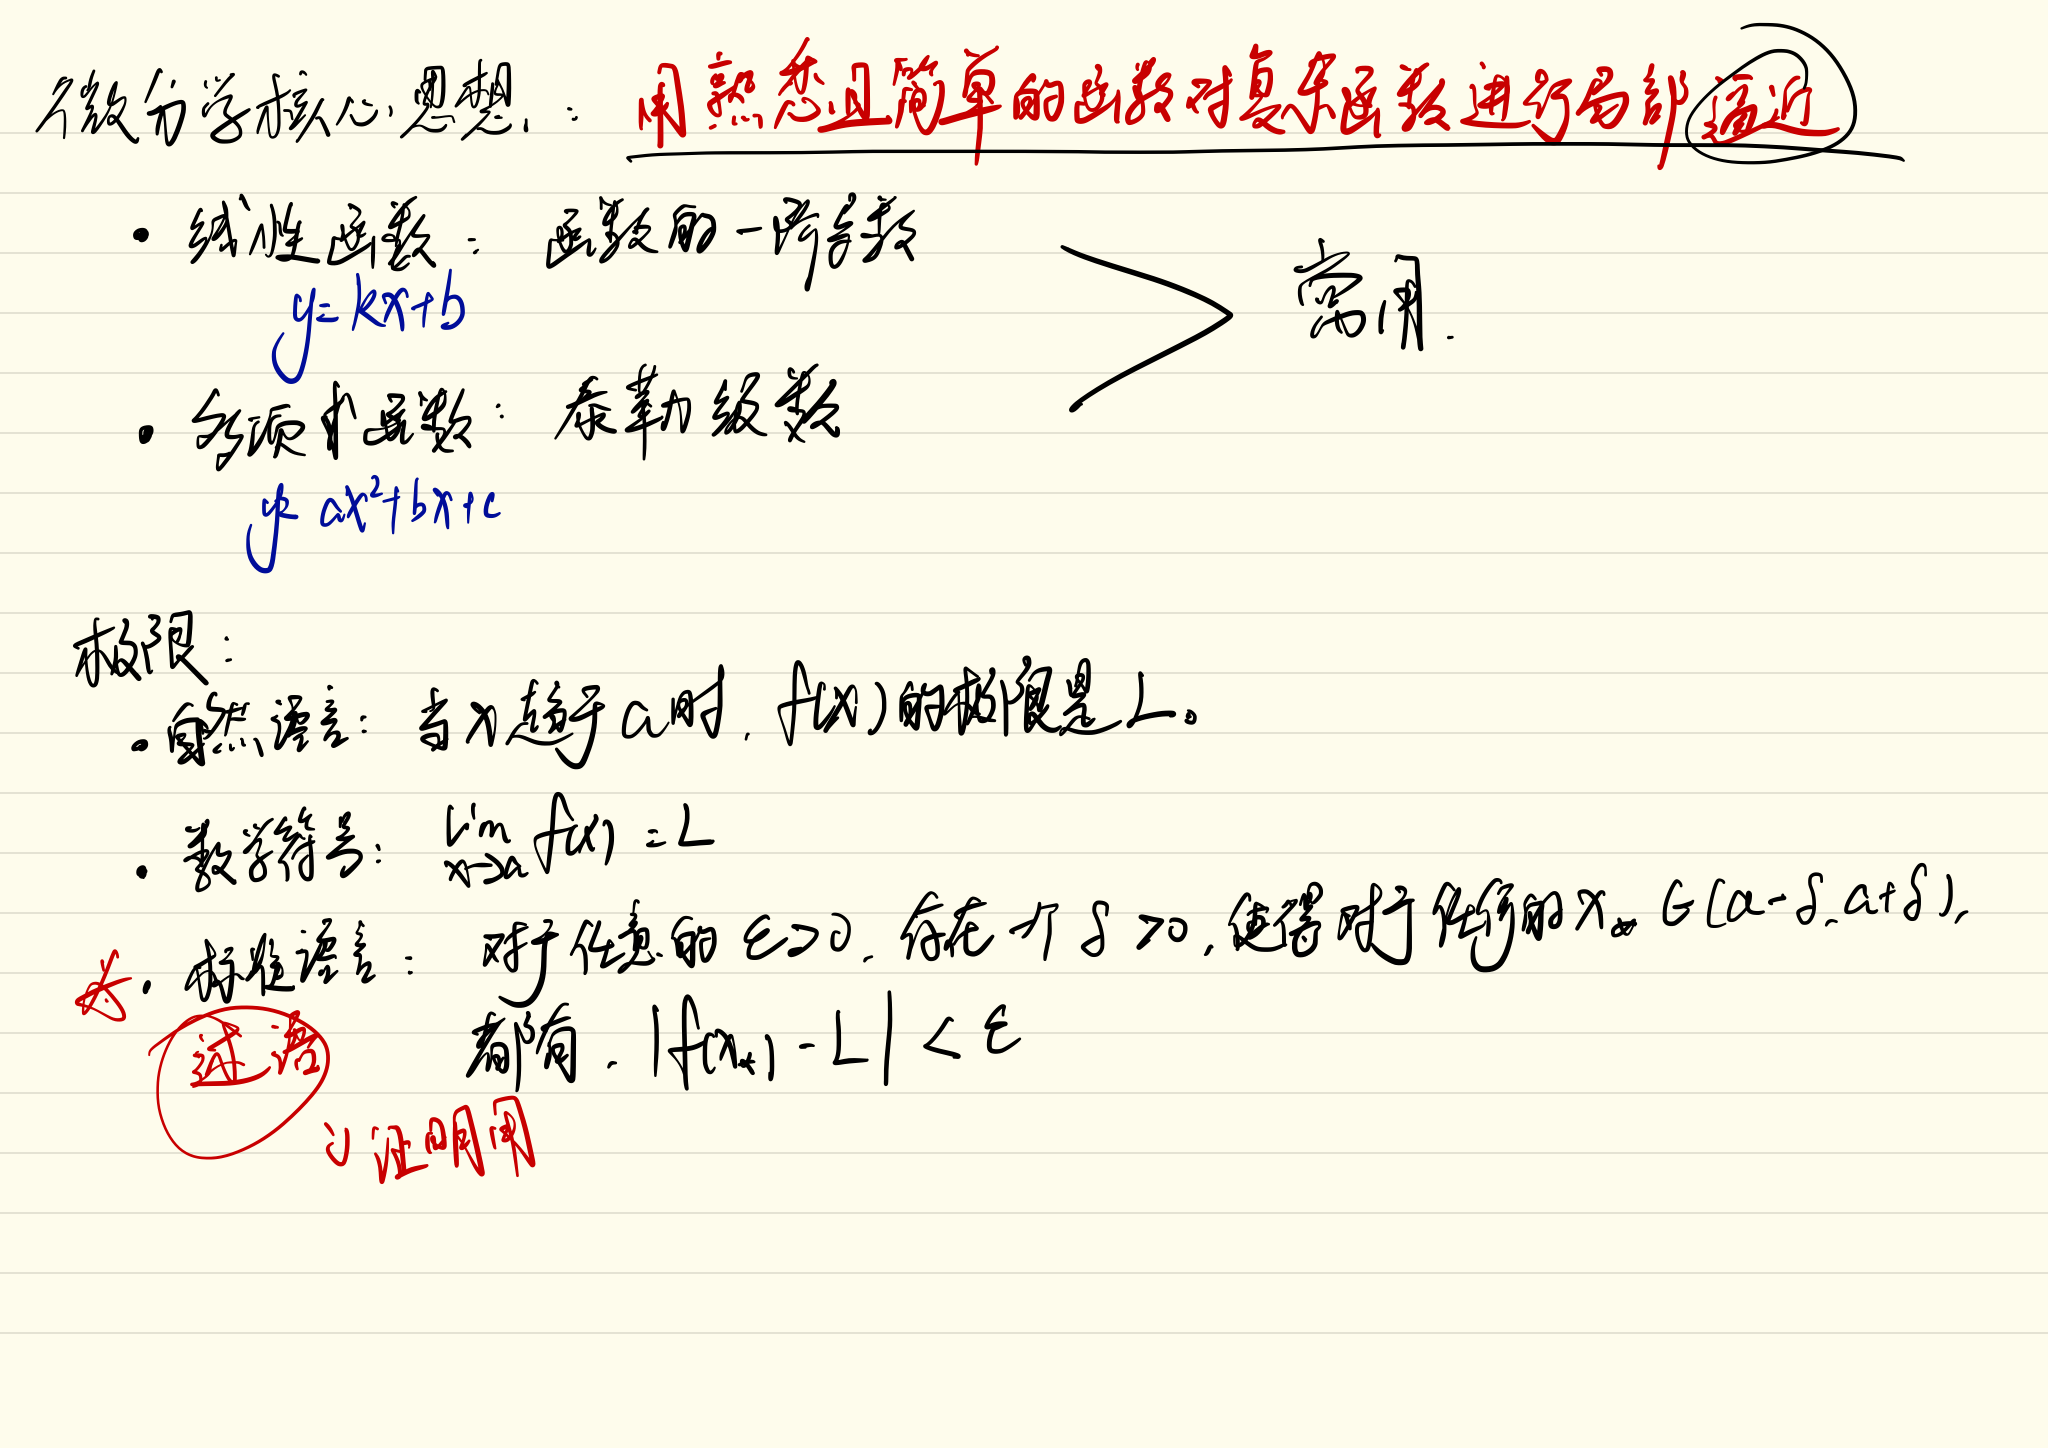 微分学核心思想: 用熟悉且简单的函数对复杂函数进行局部逼近
• 线性函数: 函数的一阶导数
y=kx+b
常用.
• 多项式函数: 泰勒级数
y=ax²+bx+c
极限:
• 自然语言: 当x趋于a时, f(x)的极限是L。
• 数学符号: lim f(x) = L
x→a
• 标准语言: 对于任意的 ε>0, 存在一个 δ>0, 使得对于任何的 x* ∈ (a-δ, a+δ),
都有, |f(x*) - L| < ε
述语
证明用